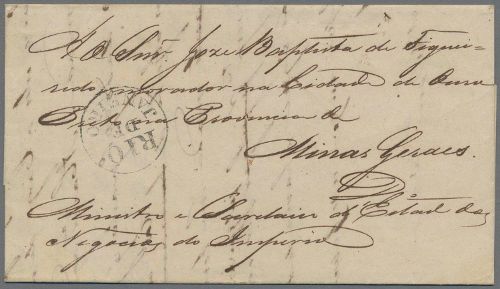 A O Snr. Joze Baptista de Figuei-
redo, morador na Cidade de Ouro
Preto na Provincia de
Minas Geraes.
Do
Ministro e Secretario d'Estado dos
Negocios do Imperio
RIO DE JANEIRO